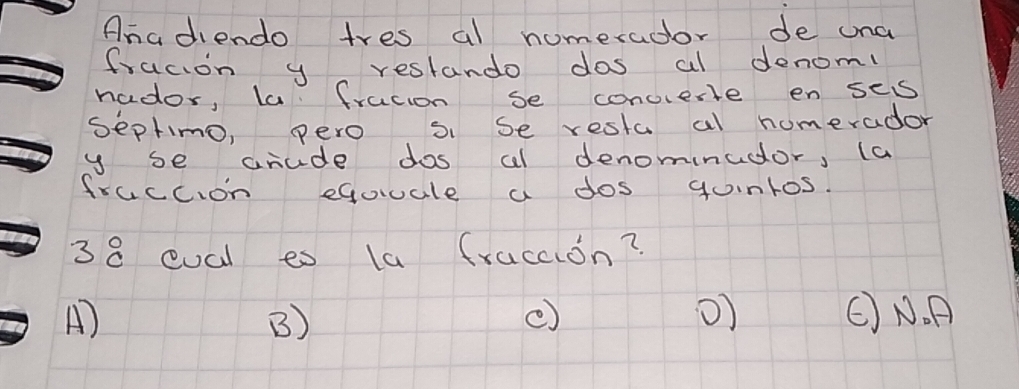 Añadiendo tres al numerador de una
fración y restando dos al denomi
nador, la fracion se convierte en seis
séptimo, pero si se resta al numerador
y se añade dos al denominador, la
fracción equivale a dos quintos.
38 cual es la fracción?
A) B) C) D) E) N.A